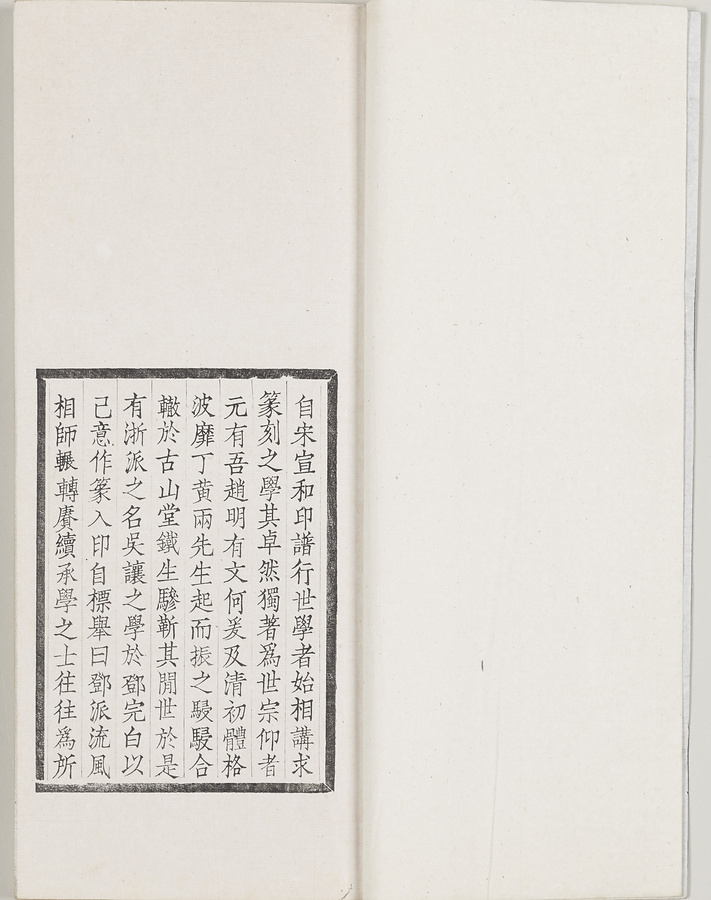 自宋宣和印譜行世學者始相講求
篆刻之學其卓然獨著爲世宗仰者
元有吾趙明有文何爰及清初體格
波靡丁黄兩先生起而振之駸駸合
轍於古山堂鐵生驂靳其閒世於是
有浙派之名吳讓之學於鄧完白以
己意作篆入印自標舉曰鄧派流風
相師輾轉賡續承學之士往往爲所